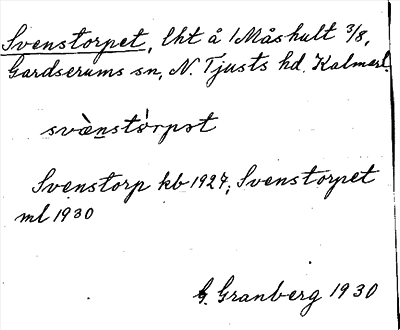 Svenstorpet, lht å 1 Måshult 3/8,
Gardserums sn, N. Tjusts hd, Kalmarl.
svæ̀nstó̀rpət
Svenstorp kb 1927; Svenstorpet
ml 1930
G. Granberg 1930